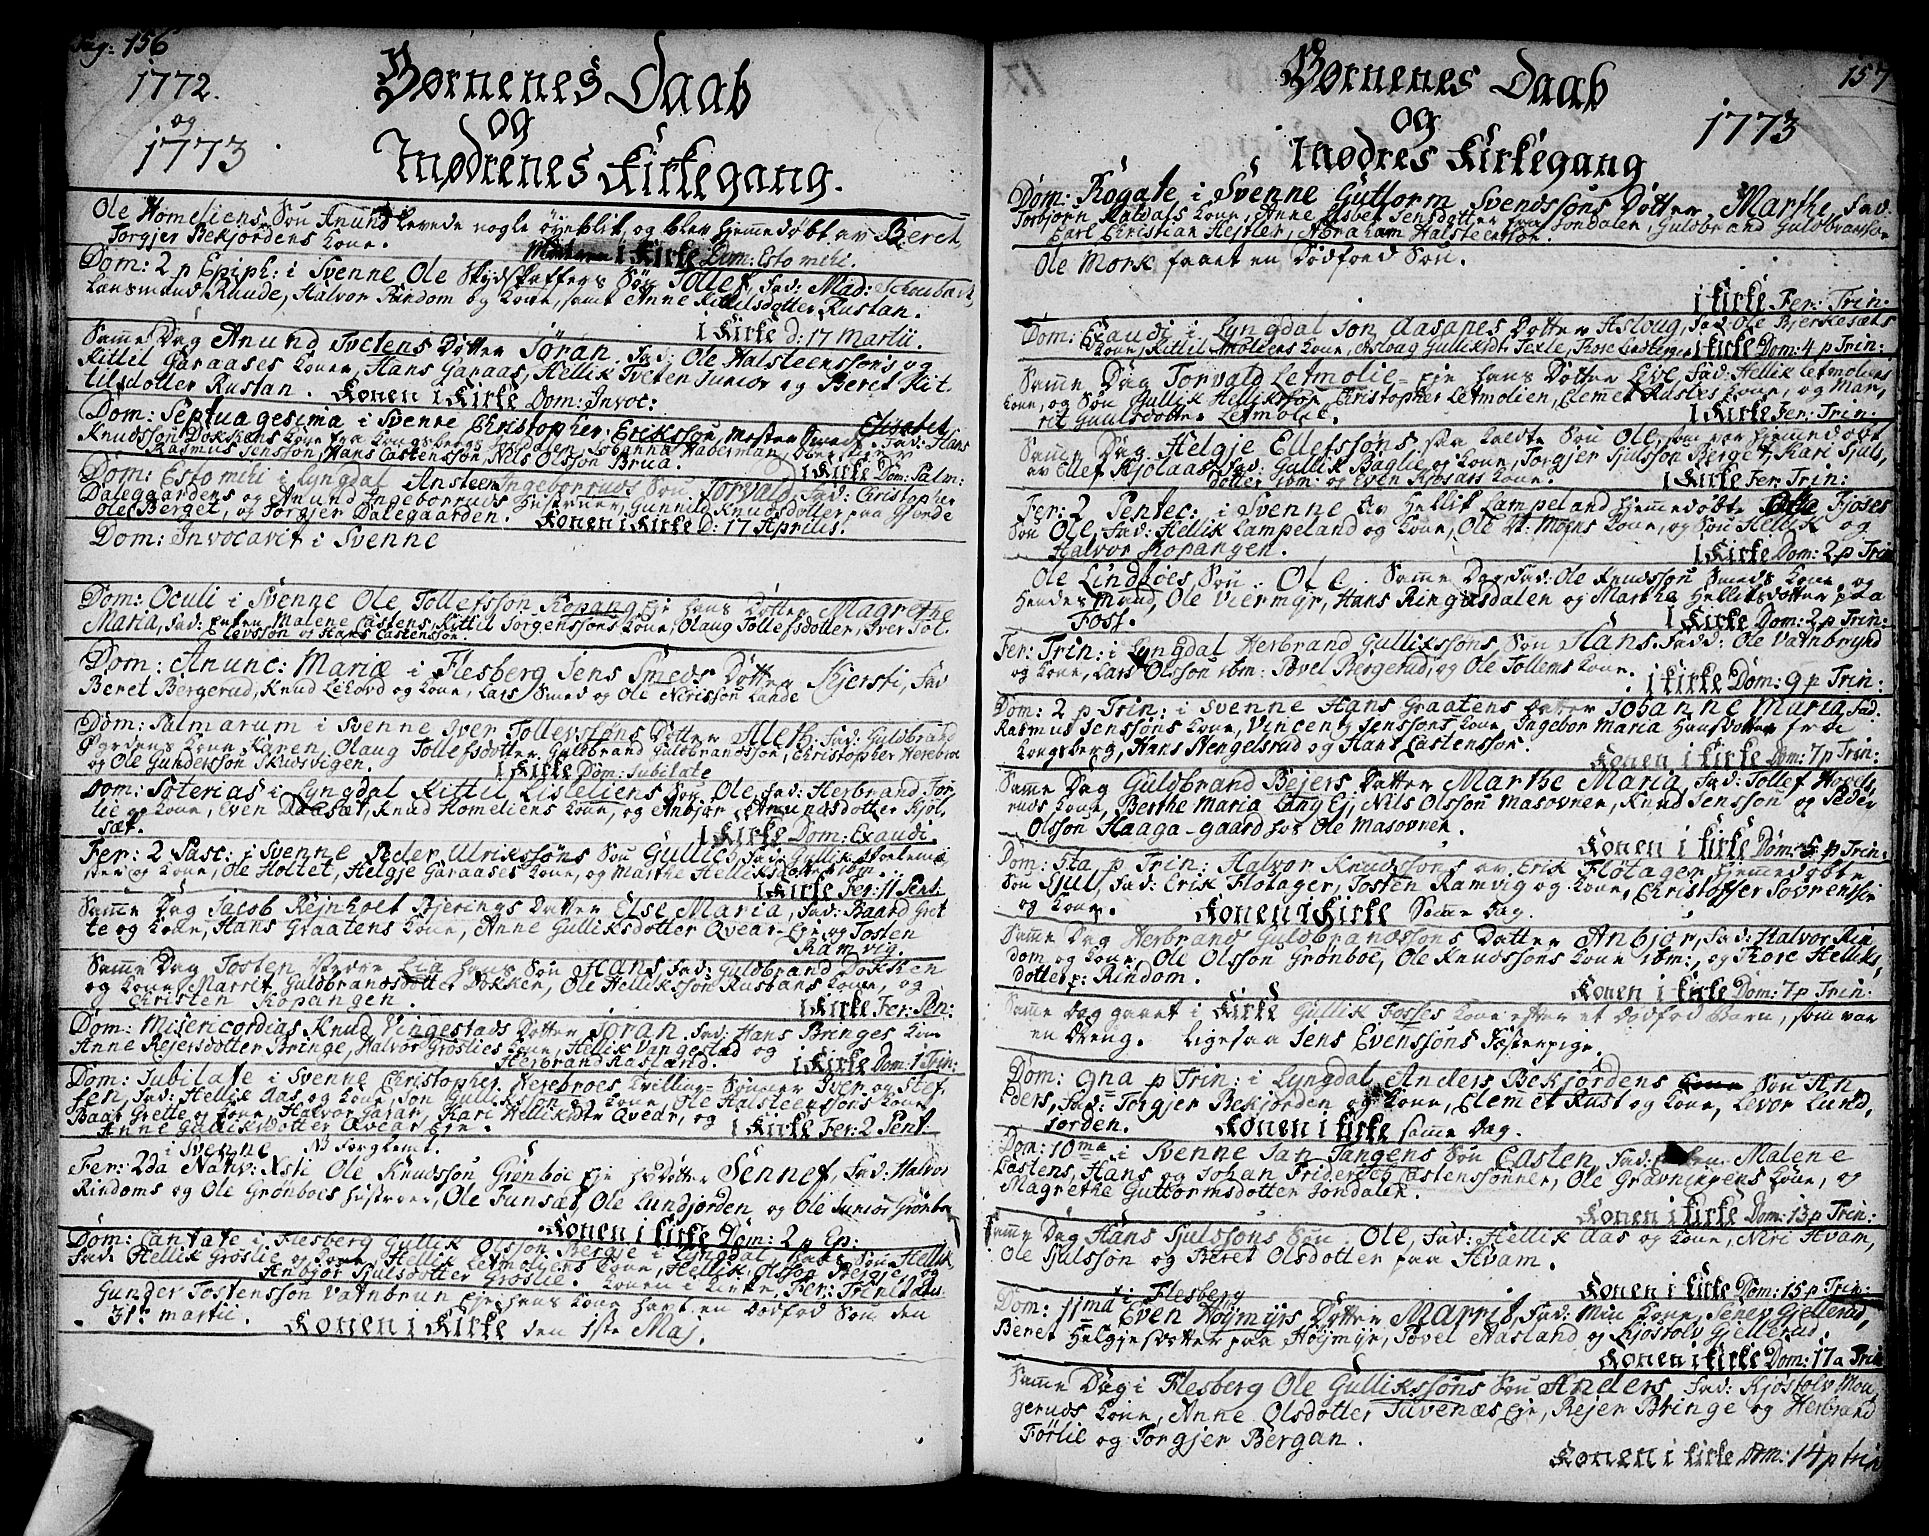 Pag: 156
1772.
og
1773
Børnenes Daab
og
Mødrenes Kirkegang.
Ole Homeliens Søn Anund levede nogle øyeblik og blev hjemmedøbt av Beret
Torgjer Bekjordens Kone. Moderen i Kirke Dom: Esto mihi.
Dom: 2 p Epiph: i Svenne Ole Skydskaffers Søn Tollef, Fad: Mad: Schoubart,
Lensmand Ruude, Halvor Rindom og Kone, samt Anne Kittilsdotter Rustan.
i Kirke D: 17 Martii.
Samme Dag Anund Tvetens Dotter Jøran. Fad: Ole Halsteenssøns og
Kittil Garaases Koner, Hans Garaas, Hellik Tveten Junior og Beret Kit
tilsdotter Rustan. Konen i Kirke Dom: Invoc:
Dom: Septuagesima i Svenne Christopher Erikssøn, Mester Smed Elisabet
Knudssøn Dokkens Kone fra Kongsberg Johanna Haberman, Fad: Hans
Rasmus Jenssøn, Hans Castenssøn, Nils Olssøn Brua. i Kirke Dom: Palm:
Dom: Esto mihi i Lyngdal Ansteen Ingeborruds Søn Torvald, Fad: Christopher
Dalegaardens og Anund Ingeborruds Hustruer, Gunnild Knudsdotter paa Gjevde
Ole Berget, og Torgjer Dalegaarden. Konen i Kirke D: 17 Aprilis.
Dom: Invocavit i Svenne
Dom: Oculi i Svenne Ole Tollefssøn Kopang Eje hans Dotter Magrethe
Maria, Fad: Enken Malene Castens, Kittil Torgenssøns Kone, Olaug Tollefsdotter, Iver Tol
levssøn og Hans Castenssøn.
Dom: Anunc: Mariæ i Flesberg Jens Smeds Dotter Kjersti, Fad
Beret Bergerud, Knud Lekovd og Kone, Lars Smed og Ole Nerissøn Laade
Dom: Palmarum i Svenne Iver Tollevssøns Dotter Aleth: Fad: Guldbrand
Øgardens Kone Karen, Olaug Tollefsdotter, Guldbrand Guldbrandssøn, Christopher Herebroe
og Ole Gunderssøn Skudsvigen. i Kirke Dom: Jubilate
Dom: Soterias i Lyngdal Kittil Lisleliens Søn Ole, Fad: Herbrand Tor
lie og Kone, Even Daasæt, Knud Homeliens Kone, og Anbjør Amunasdotter Kjøl
sæt. i Kirke Dom: Exaudi.
Fer: 2 Pasc: i Svenne Peder Ulrikssøns Søn Gullik, Fad: Gullik Skolemæ
ster og Kone, Ole Holtet, Helgje Garaases Kone, og Marthe Helliksdotter ibm.
i Kirke Fer: 11 Pent
Samme Dag Jacob Rejnholt Bjerings Datter Else Maria, Fad: Baard Gret
te og Kone, Hans Graatens Kone, Anne Gulliksdotter Qvear-Eje og Tosten
Ramvig.
Samme Dag Tosten Nedre Lia hans Søn Hans, Fad: Guldbrand Dokken
og Kone, Marrit Guldbrandsdotter Dokken, Ole Hellikssøn Rustans Kone, og
Christen Kopangen. i Kirke Fer: Pen:
Dom: Misericordias Knud Vingestads Dotter Jøran. Fad: Hans Bringes Kone
Anne Rejersdotter Bringe, Halvor Groslies Kone, Hellik Vangestad og
Herbrand Aasland. i Kirke Dom: 1 Trin:
Dom: Jubilate i Svenne Christopher Herebroes Tvilling-Sønner Iver og Stef
fen, Fad: Hellik Aas og Kone, Jon Gullikssøn og Kone, Ole Halsteenssøns Kone,
Baar Grette og Kone, Halvor Garar, Kari Helliksdtr Qvear, og
Anne Gulliksdotter Qvear Eje. i Kirke Fer: 2 Pent
i Svenne NB Forglemt.
Fer: 2da Nativ: Xsti Ole Knudssøn Grønboe Eje hs Dotter Sennef, Fad: Halvor
Rindoms og Ole Grønboes Hustruer, Ole Funsæt, Ole Lundjorden og Ole Junior Grønboe
Konen i Kirke Dom: 2 p Ep:
Dom: Cantate i Flesberg Gullik Olssøn Bergje i Lyngdal hans Søn Hellik
Fad: Hellik Groslie og Kone, Hellik Letmoliens Kone, Hellik Olssøn Bergje, og
Anbjør Sjulsdotter Groslie. Konen i Kirke, Fer: Trinitatis
Gunder Tostenssøn Vatnbrun Eje hans Kone havt en Dødfød Søn den
31te Martii. Konen i Kirke den 1ste Maj.
157
1773
Børnenes Daab
og
Mødres Kirkegang
Dom: Rogate i Svenne Guttorm Svendssøns Dotter Marthe, Fad:
Torbjørn Kaldals Kone, Anne Elsbet Jensdotter fra Jondalen, Guldbrand Guldbranssøn
Carl Christian Hejtler, Abraham Halsteenssøn.
Ole Mork faaet en Dødfød Søn.
i Kirke Fer: Trin:
Dom: Exaudi i Lyngdal Jon Aasanes Dotter Asloug, Fad: Ole Bjerkesæts
Kone, Kittil Moliens Kone, Aslaug Gulliksdtr Texle, Thore i Kirke Dom: 4 p Trin:
Samme Dag Torvald Letmolie-Eje hans Dotter Live, Fad: Hellik Letmoliens
Kone, og Søn Gullik Hellikssøn, Christopher Letmolien, Clemet Rustes Kone, og Mar,
rit Guulsdotter Letmolie. i Kirke Fer: Trin:
Samme Dag Helgje Ellefssøns saa kaldte Søn Ole, som var hjemmedøbt
av Ellef Kjølaas, Fad: Gullik Baglie og Kone, Torgjer Sjulssøn Berget, Kari Sjuls,
dotter ibm: og Even Kjøsaas Kone. i Kirke Fer: Trin:
Fer: 2 Pentec: i Svenne Av Hellik Lampeland hjemmedøbte Fjøses
Søn Ole, Fad: Hellik Lampeland og Kone, Ole V. Moens Kone, og Søn Hellik og
Halvor Kopangen. i Kirke Dom: 2 p Trin
Ole Lindboes Søn Ole. Samme Dag Fad: Ole Knudssøn Smeds Kone, og
Hendes Mand, Ole Viermyr, Hans Ringasdalen og Marthe Helliksdotter paa
Foss. i Kirke Dom: 2 p Trin:
Fer: Trin: i Lyngdal Herbrand Gullikssøns Søn Hans. Fadd: Ole Vatnbrynd
og Kone, Lars Olssøn ibm: Povel Bergerud, og Ole Tollems Kone.
i Kirke Dom: 9 p Trin:
Dom: 2 p Trin: i Svenne Hans Graatens Datter Johanne Maria, Fad.
Rasmus Jenssøns Kone, Vincentz Jenssøns Kone, Ingebor Maria Hansdotter fra
Kongsberg, Hans Stengelsrud og Hans Castenssøn.
Konen i Kirke Dom: 7 p Trin:
Samme Dag Guldbrand Bejers Datter Marthe Maria, Fad: Tollef Hvods,
ruds Kone, Berthe Maria Langej, Nils Olssøn Masovner, Knud Jenssøn og Peder
Olssøn Haaga-gaard hos Ole Masovner.
Konen i Kirke Dom: 5 p Trin:
Dom: 5ta p Trin: Halvor Knudssøns av Erik Fløtager hjemmedøbte
Søn Sjul, Fad: Erik Fløtager, Tosten Ramvig og Kone, Christoffer Sovrenssøn
og Kone. Konen i Kirke Samme Dag.
Samme Dag Herbrand Guldbrandssøns Datter Anbjør, Fad: Halvor Rin
dom og Kone, Ole Olssøn Grønboe, Ole Knudssøns Kone ibm:, og Thore Helliks,
dotter p: Rindom. Konen i Kirke Dom: 7 p Trin:
Samme Dag gaaet i Kirke Gullik Fosses Kone efter et Dødfød Barn, som var
en Dreng. Ligesaa Jens Evenssøns Fæstepige.
Dom: 9na p Trin: i Lyngdal Anders Bekjordens Søn An
ders, Fad: Torgjer Bekjorden og Kone, Clemet Rust og Kone, Levor Lund,
jorden. Konen i Kirke samme Dag.
Dom: 10ma i Svenne Jan Tangens Søn Casten, Fad: Enken Malene
Castens, Hans og Johan Friderich Castenssønner, Ole Gravningens Kone, og
Magrethe Guttormsdotter Jondalen.
Konen i Kirke Dom: 13 p Trin:
Samme Dag Hans Sjulssøns Søn Ole, Fad: Hellik Aas og Kone, Niri Hvam,
Ole Sjulssøn og Beret Olsdotter paa Hvam.
Konen i Kirke Dom: 15 p Trin:
Dom: 11ma i Flesberg Even Høymyrs Dotter Marrit, Fad: Min Kone, Senev Gjellerud,
Beret Helgjesdotter paa Høymyr, Povel Aasland og Kjøstolv Gjellerud.
Konen i Kirke Dom: 17 a Trin
Samme Dag i Flesberg Ole Gullikssøns Søn Anders, Fad: Kjøstolv Mou
geruds Kone, Anne Olsdotter Juvenæs Eje, Rejer Bringe og Herbrand
Førlie og Torgjer Bergan.
Konen i Kirke Dom: 14 p Trin